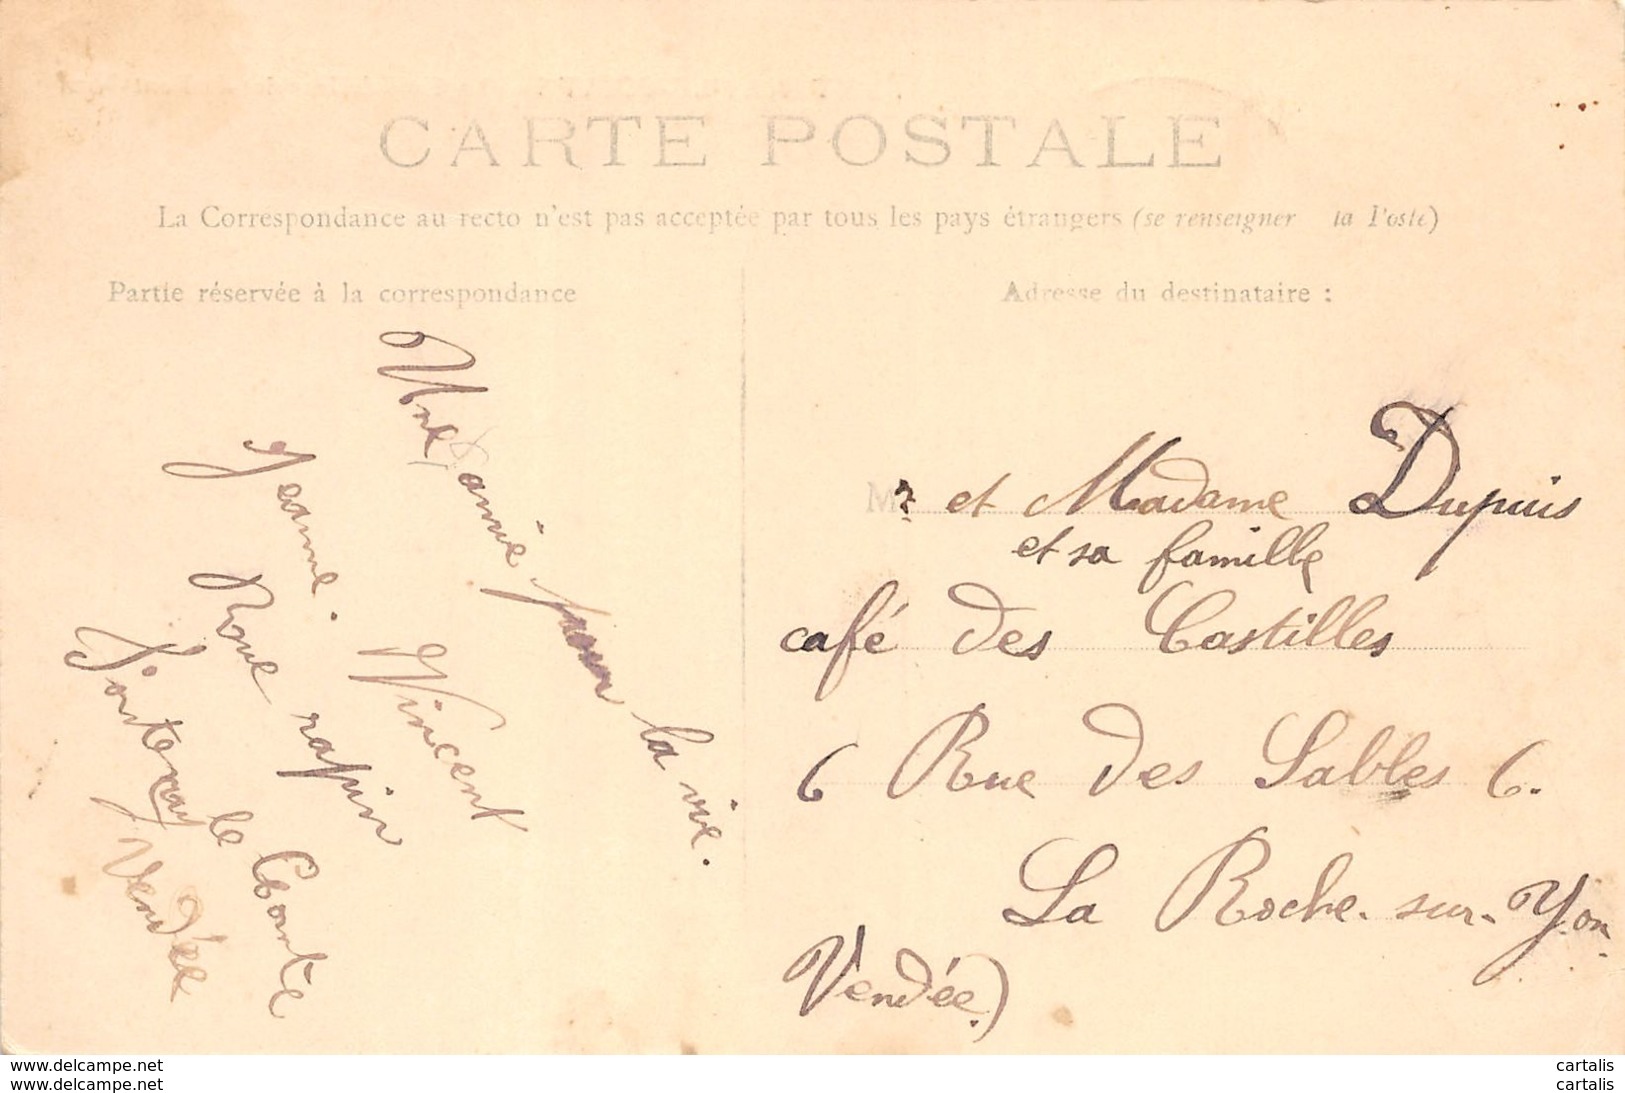 CARTE POSTALE
La Correspondance au recto n'est pas acceptée par tous les pays étrangers (se renseigner la Poste)
Partie réservée à la correspondance
Adresse du destinataire :
Une amie pour la vie.
Jeanne. Vincent
Rue rapin
Fontenay le Comte
Vendée
Mr et Madame Dupuis
et sa famille
café des Castilles
6 Rue des Sables 6.
La Roche-sur-Yon
Vendée)
www.delcampe.net
www.delcampe.net
cartalis
cartalis